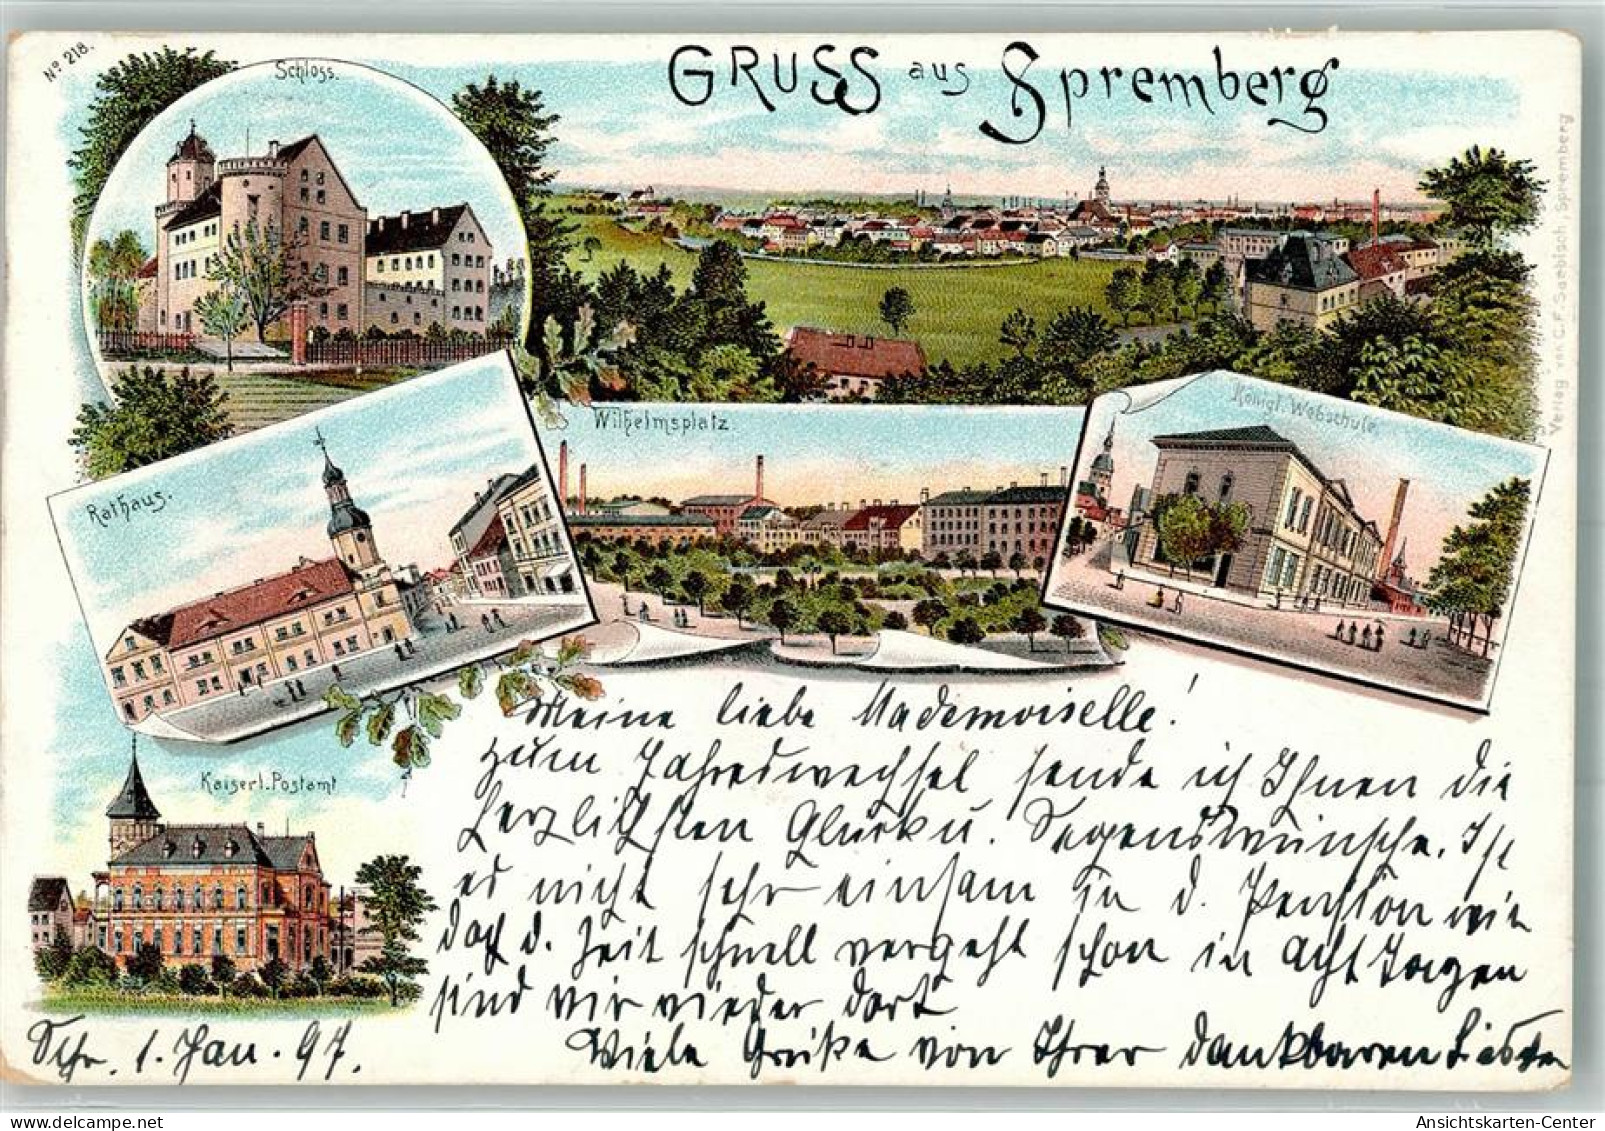 No 218.
Schloss.
GRUSS aus Spremberg
Wilhelmsplatz
Königl. Webschule.
Rathaus.
Kaiserl. Postamt
Verlag von C.F. Saebisch, Spremberg
Meine liebe Mademoiselle!
zum Jahreswechsel sende ich Ihnen die
herzlichsten Glück u. Segenswünsche. Ist
es nicht sehr einsam in d. Pension wie
doch d. Zeit schnell vergeht schon in acht Tagen
sind wir wieder dort
Viele Grüße von Ihrer dankbaren
1. Jan. 97.
Ansichtskarten-Center